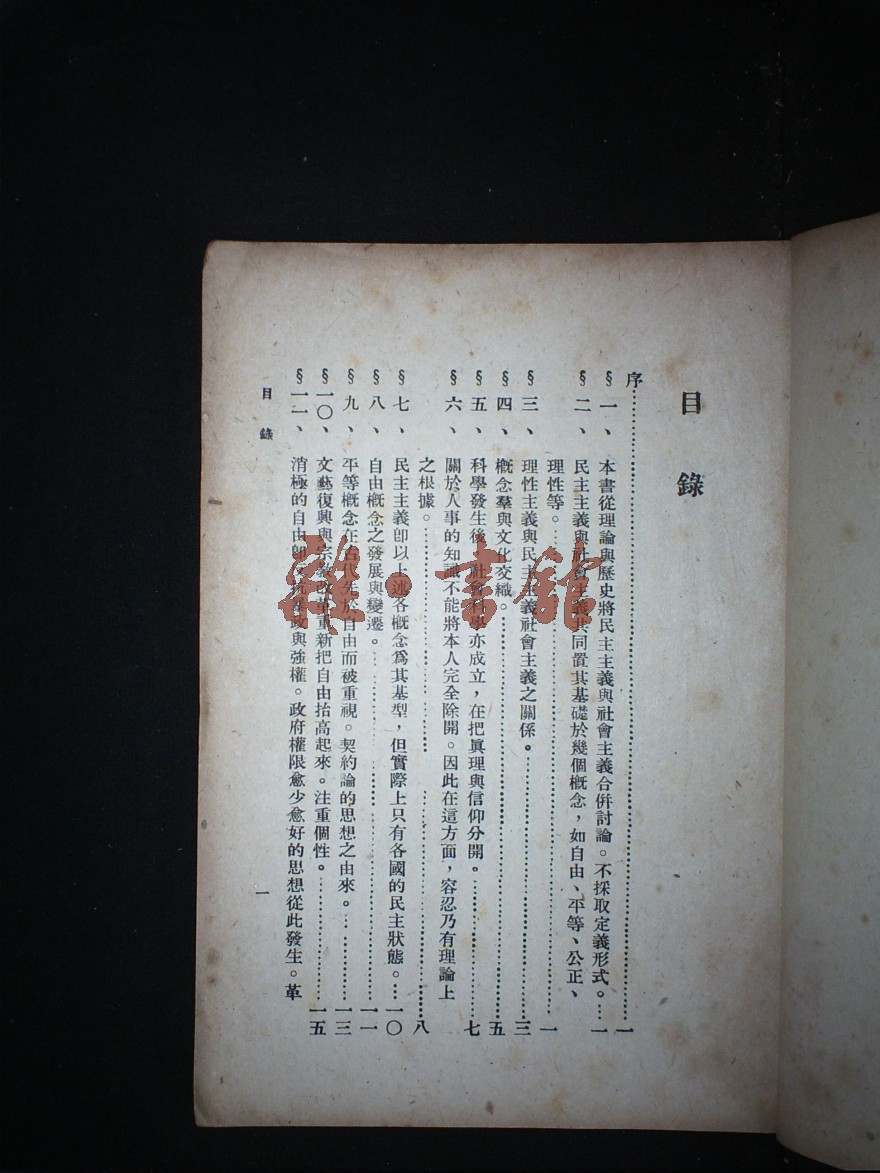 目錄
序……………………………………一
§一、本書從理論與歷史將民主主義與社會主義合併討論。不採取定義形式。…一
§二、民主主義與社會主義共同置其基礎於幾個概念，如自由、平等、公正、
理性等。……………………………………一
§三、理性主義與民主主義社會主義之關係。……………………三
§四、概念羣與文化交織。……………………………五
§五、科學發生後，社會科學亦成立，在把眞理與信仰分開。…………七
§六、關於人事的知識不能將本人完全除開。因此在這方面，容忍乃有理論上
之根據。……………………………………八
§七、民主主義卽以上述各概念爲其基型，但實際上只有各國的民主狀態。…一〇
§八、自由概念之發展與變遷。……………………………一一
§九、平等概念在古代先於自由而被重視。契約論的思想之由來。………一三
§一〇、文藝復興與宗教改革重新把自由抬高起來。注重個性。…………一五
§一一、消極的自由卽反抗暴政與強權。政府權限愈少愈好的思想從此發生。革
目錄
一
雜·書館